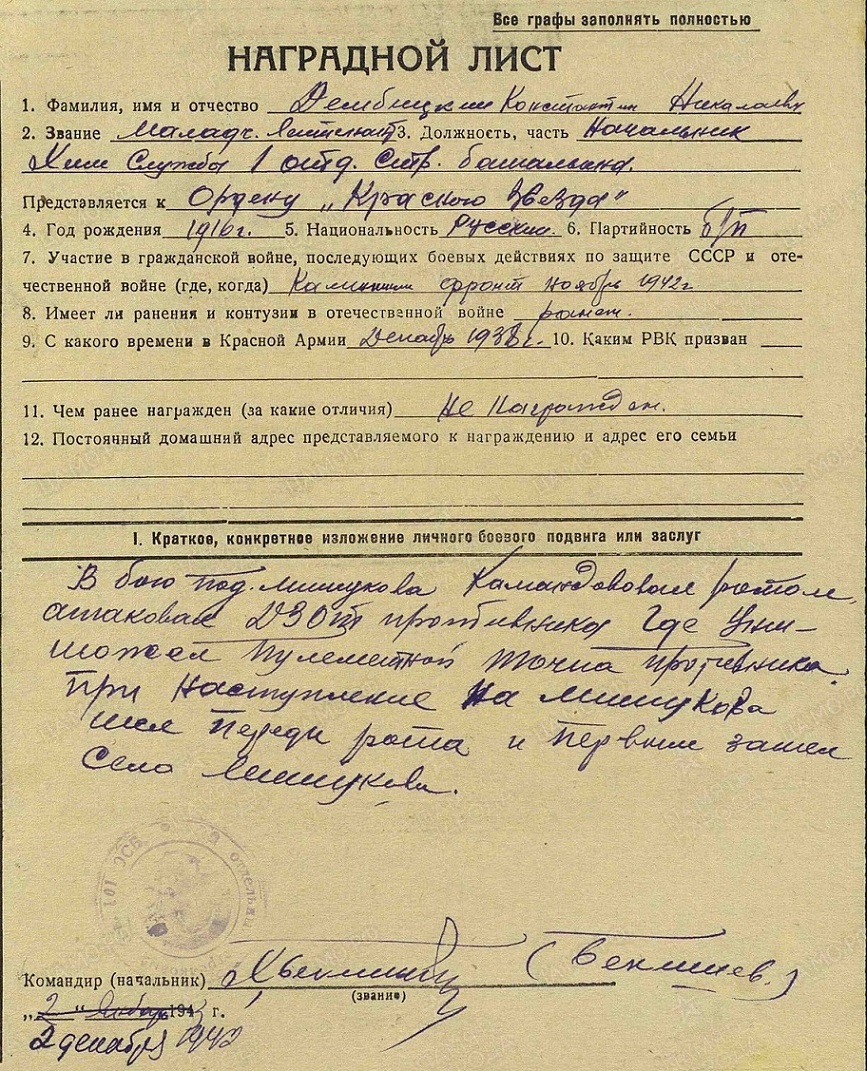 Все графы заполнять полностью
НАГРАДНОЙ ЛИСТ
1. Фамилия, имя и отчество Дембицкий Константин Николаевич
2. Звание Маладч. Лейтенант 3. Должность, часть Начальник
Хим Служба 1 отд. Стр. батальона.
Представляется к Ордену „Красного Звезда"
4. Год рождения 1916 г. 5. Национальность Русский. 6. Партийность б/п
7. Участие в гражданской войне, последующих боевых действиях по защите СССР и оте-
чественной войне (где, когда) Калинин фронт ноябрь 1942 г
8. Имеет ли ранения и контузии в отечественной войне ранен.
9. С какого времени в Красной Армии Декабрь 1938 г. 10. Каким РВК призван
11. Чем ранее награжден (за какие отличия) Не Награжден.
12. Постоянный домашний адрес представляемого к награждению и адрес его семьи
I. Краткое, конкретное изложение личного боевого подвига или заслуг
В бою под. Мишукова Камандововал ротой,
атаковал ДЗОТ противника Где Уни-
тожел Пулеметной точка противника.
При Наступление На Мишукова
шел Переди рота и Первым зашел
Село Мишукова.
101 ОСБ отдельн
Командир (начальник) (Беклишев.)
(звание)
„2" Январь 1943 г.
2 декабря 1942